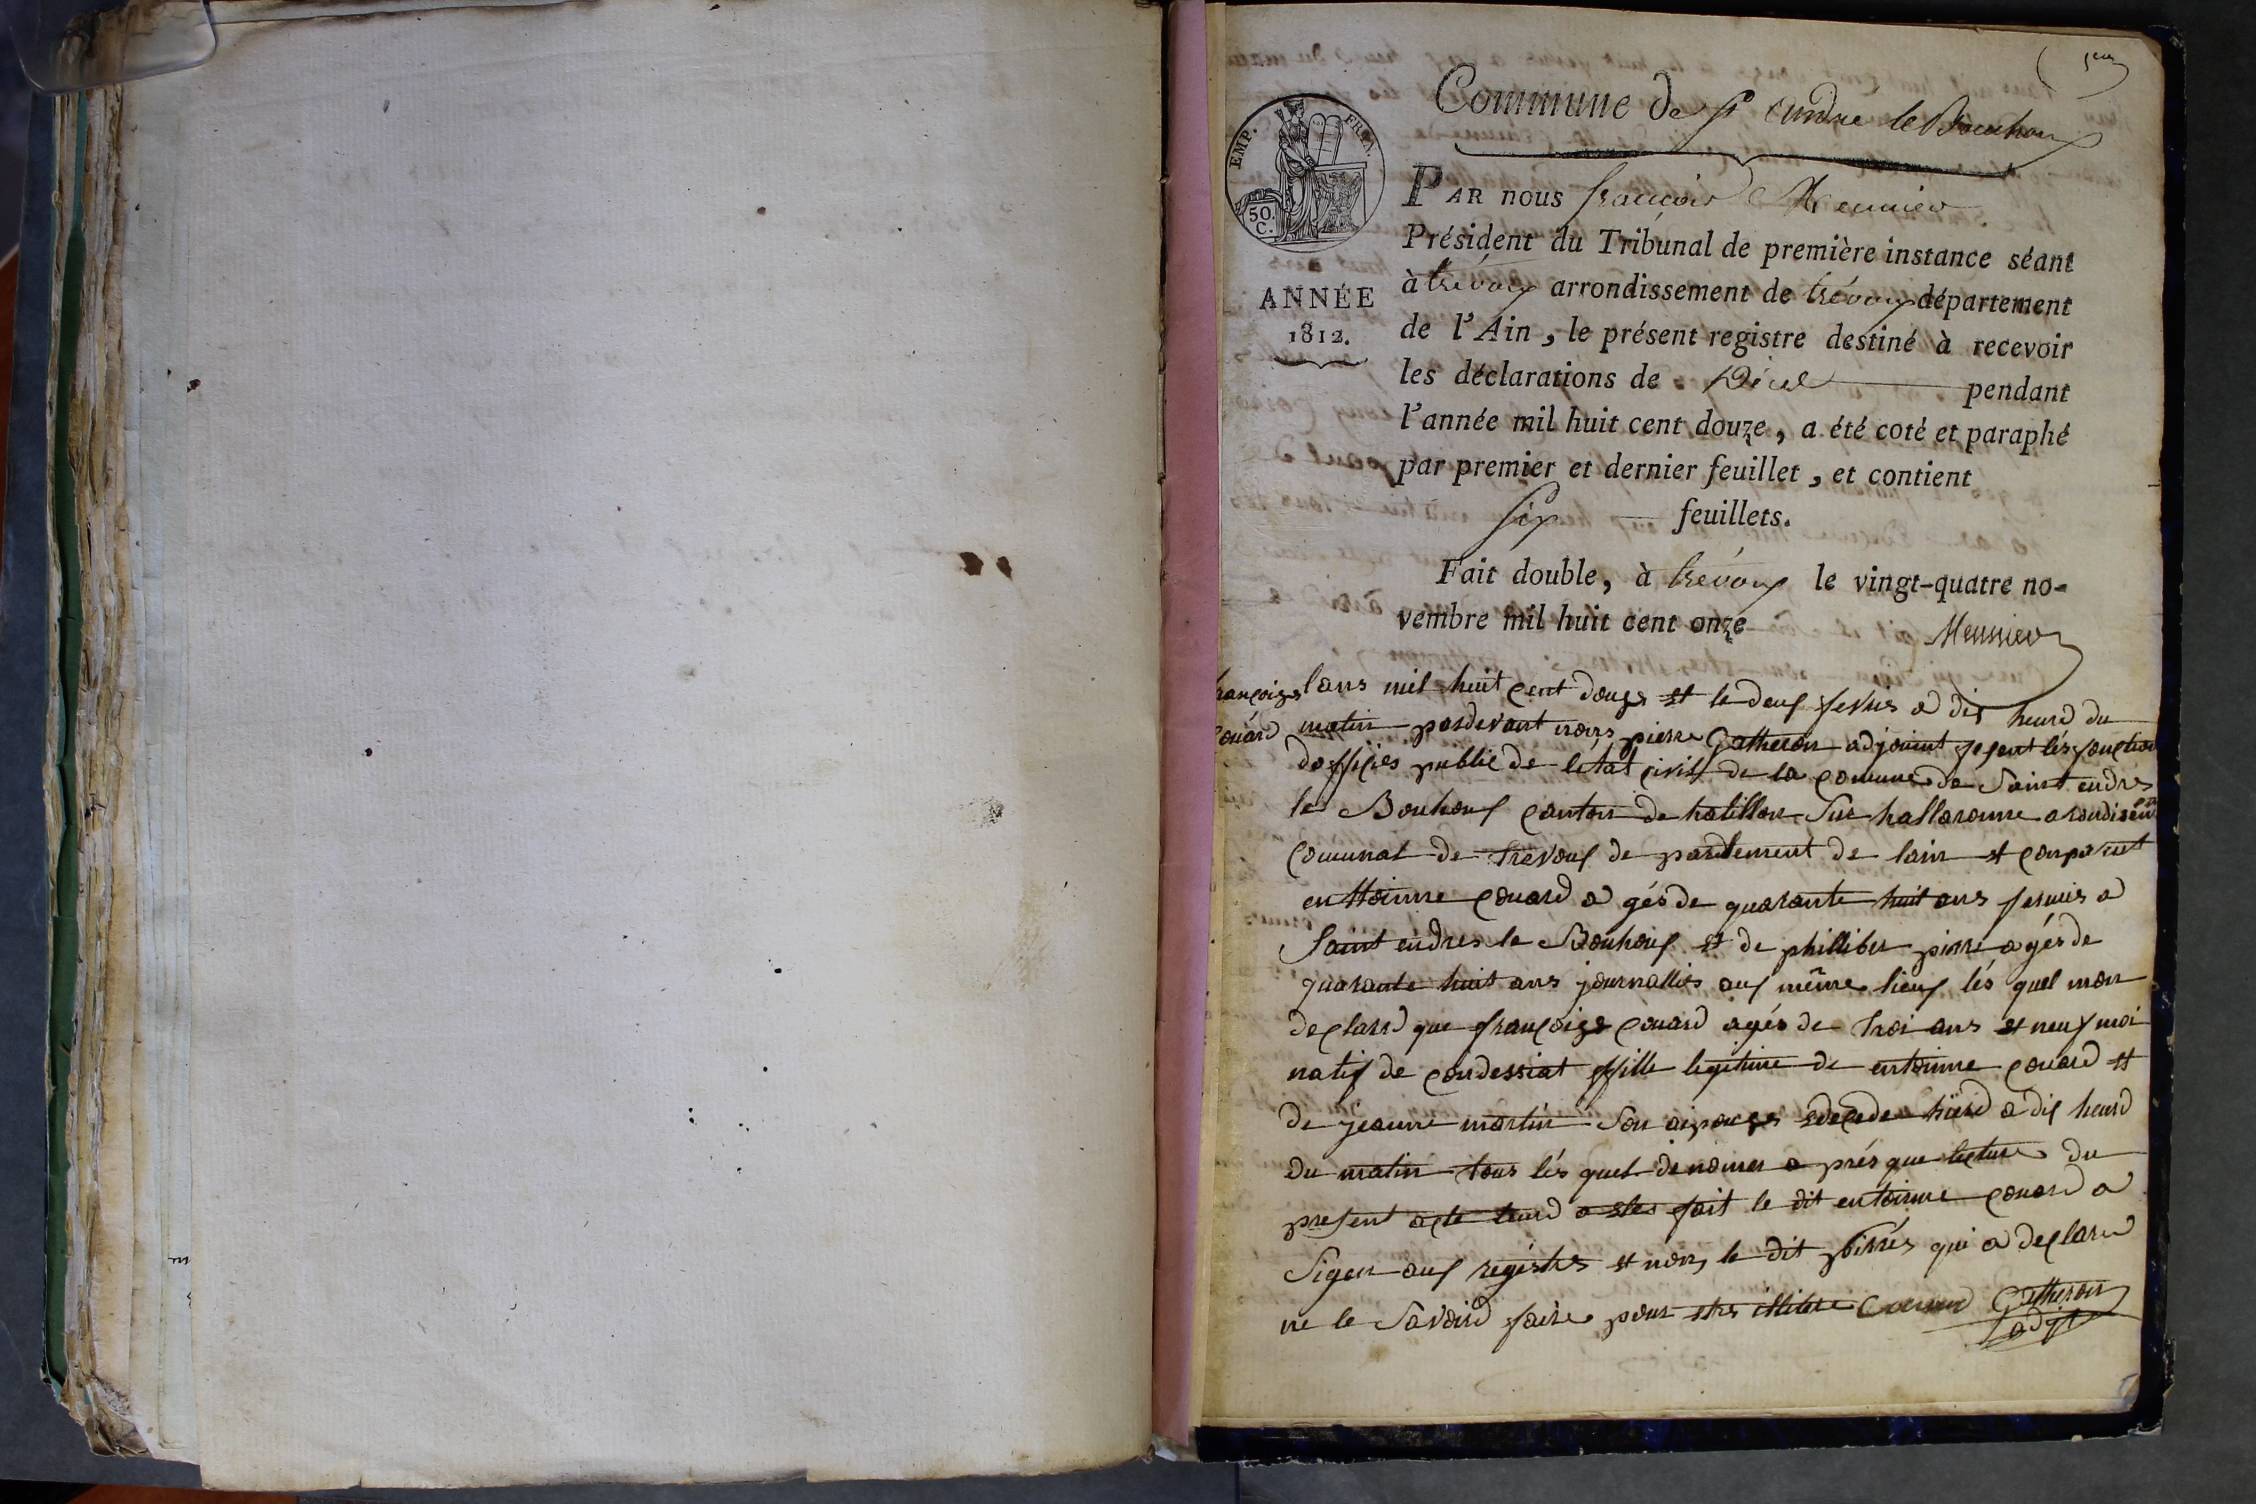 1er
Commune de St andré le Bouchoux
EMP. FRAN.
50.
C.
ANNÉE
1812.
PAR nous françois Meunier
Président du Tribunal de première instance séant
à trévoux arrondissement de trévoux département
de l'Ain, le présent registre destiné à recevoir
les déclarations de Décès pendant
l'année mil huit cent douze, a été coté et paraphé
par premier et dernier feuillet, et contient
six feuillets.
Fait double, à trévoux le vingt-quatre no-
vembre mil huit cent onze
Meunier
françoize
Couard
lans mil huit cent douze et le deux fevrie a dix heure du
matin pardevant nous pierre Gatheron adjouint fesent lés fonction
dofficies publie de letat civil de la comune de Saint endres
le Bouhoux canton de hatillon Sur hallaronne arondisem
comunal de trevoux de partement de lain et comparut
enttoinne couard a gés de quarante huit ans fermis a
Saint endres le Bouhoux et de phillibes pirre a gés de
quarante huit ans journallies aux même lieux lés quel mon
declard que françoize couard agés de troi ans et neuf moi
natif de condessiat fille legitime de entoinne couard et
de jeanne martin Son aipouze decede hierd a dix heurd
du matin tous lés quel denomer a prés que lecture du
present acte leurd a ete fait le dit entoinne couard a
Signer aux registres et non le dit pirrés qui a declare
ne le Savoird faire pour etre illitere Couard Gatheron
adjt